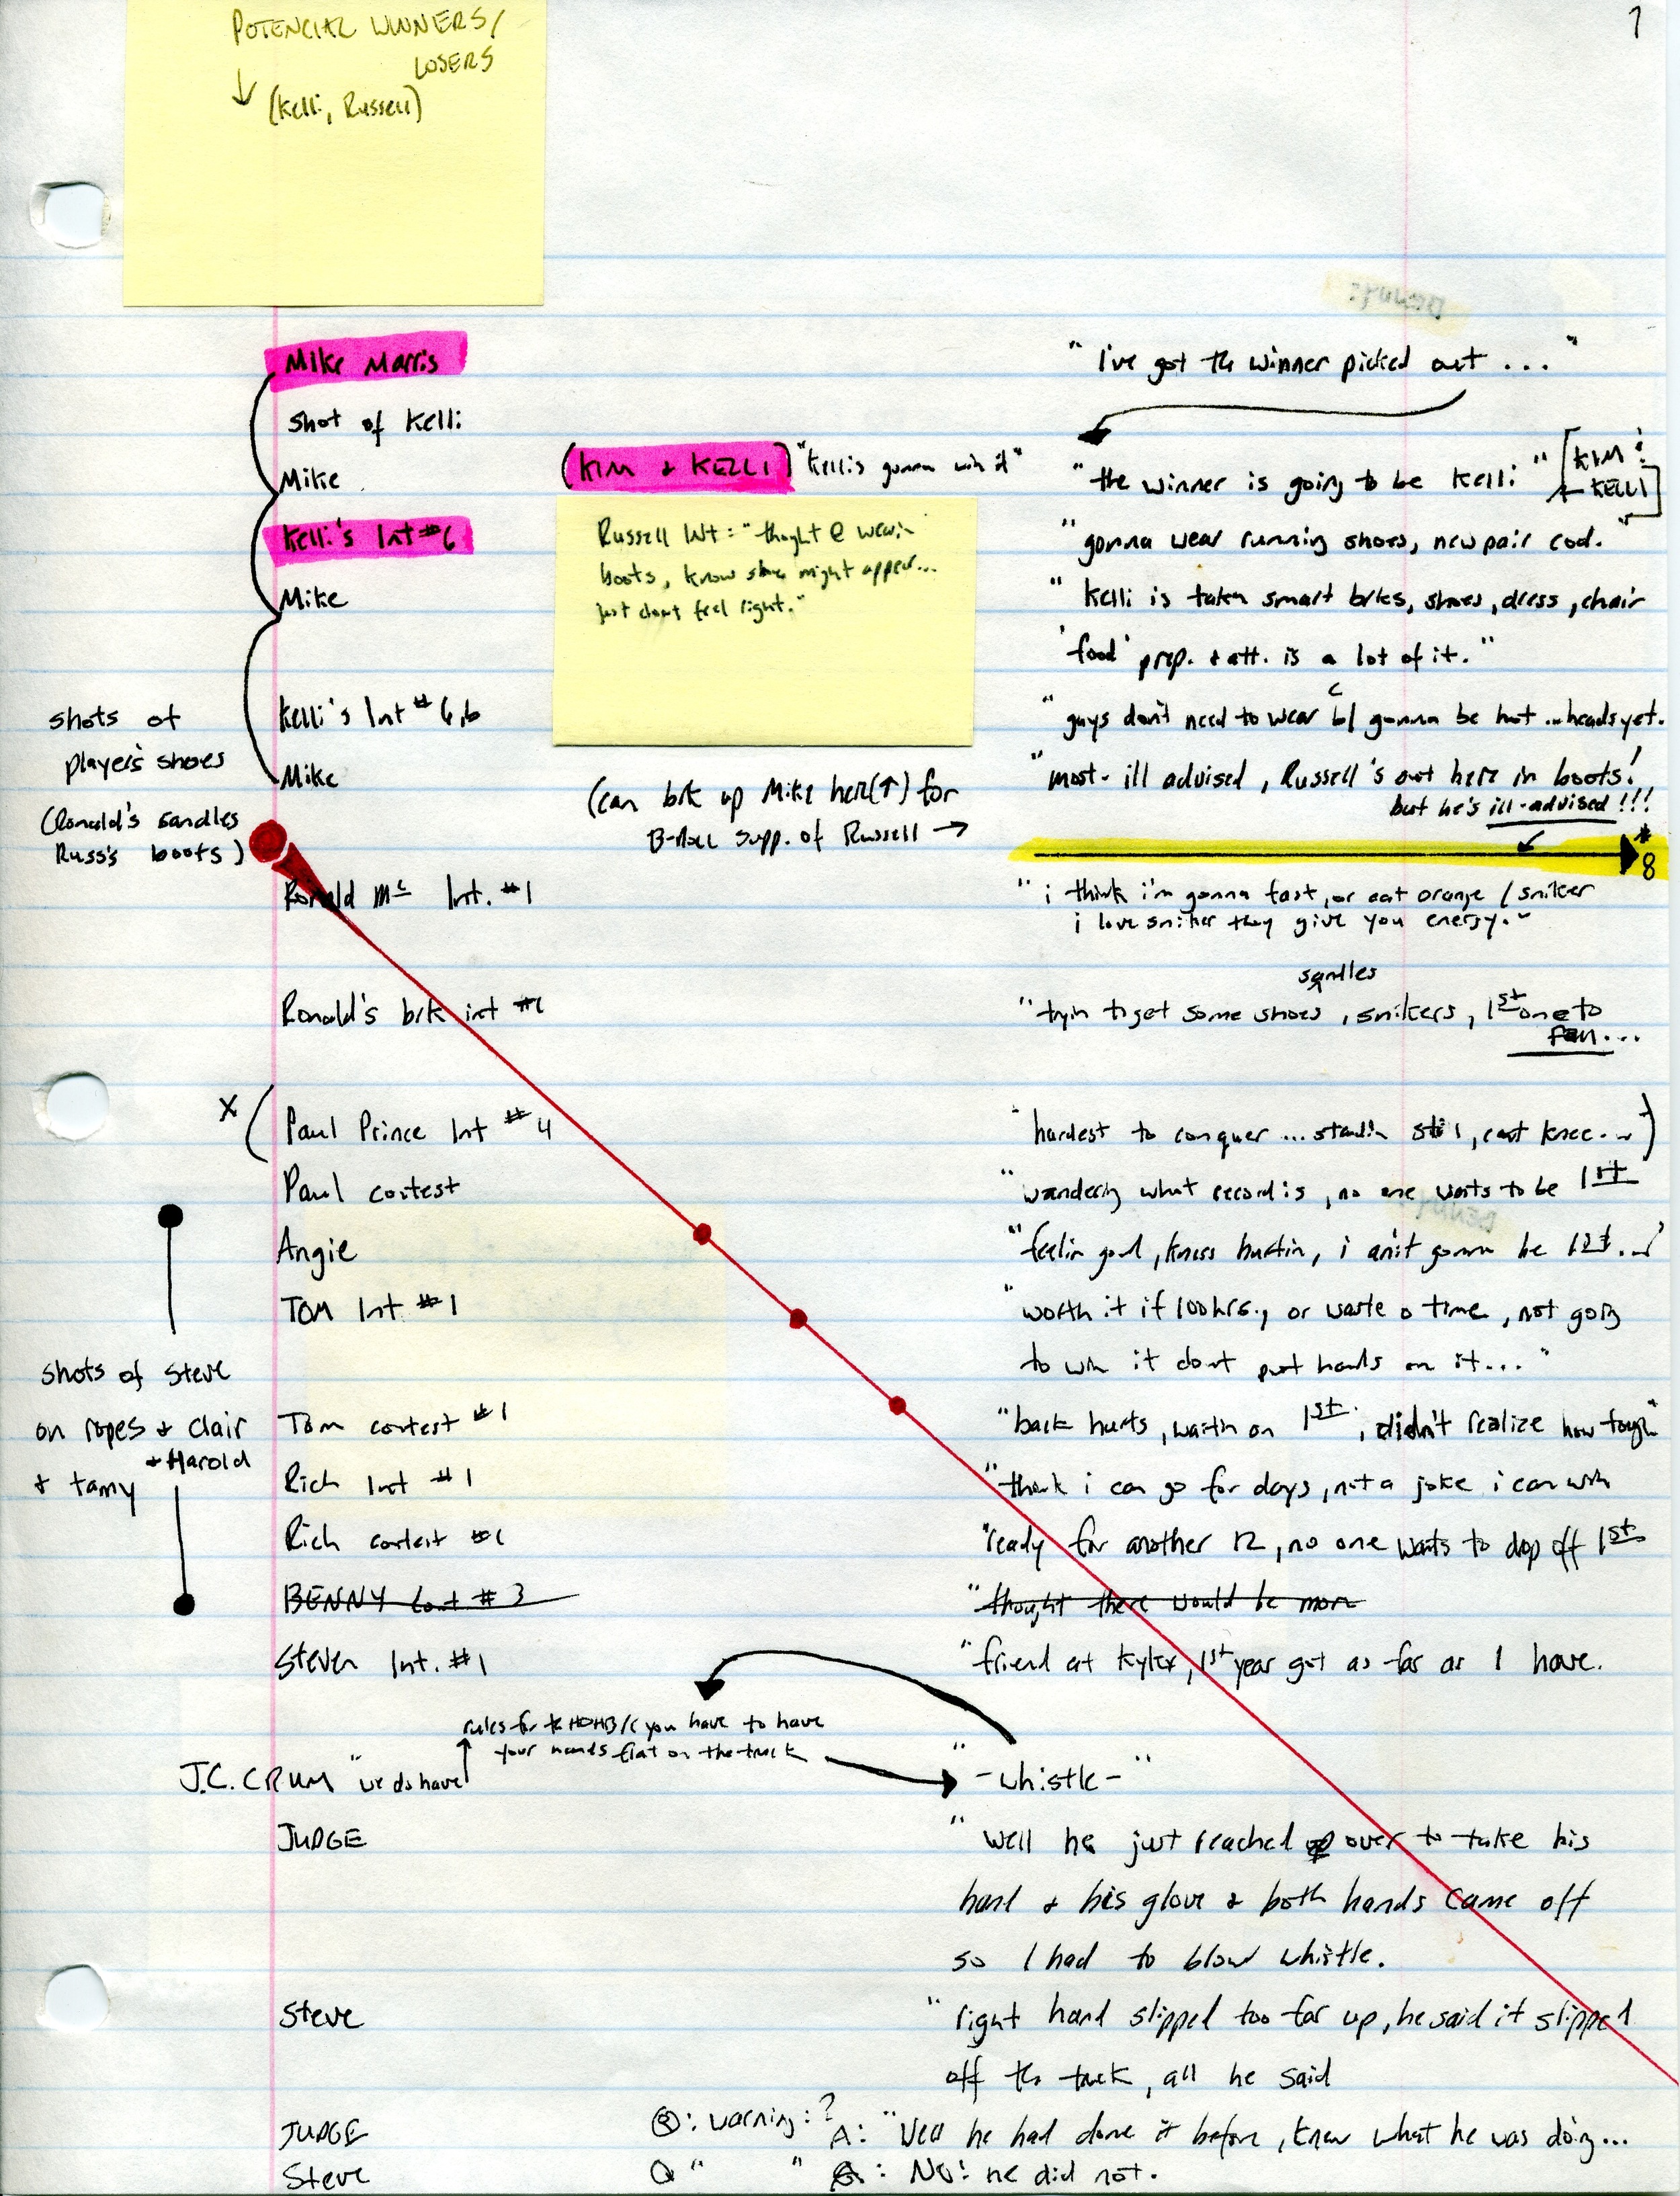 7
POTENCIAL WINNERS/
LOSERS
↓ (Kelli, Russell)
Mike Marris
"I've got the winner picked out ..."
shot of Kelli
Mike
(KIM & KELLI) "Kelli's gonna win it"
"the winner is going to be Kelli" [KIM &
KELLI]
Kelli's Int #6
"gonna wear running shoes, new pair cod."
Russell Int = "thought @ wearin
boots, know shoes might appear...
just don't feel right."
Mike
"Kelli is taken smart brks, shoes, dress, chair
'food' prep. & att. is a lot of it."
Kelli's Int #6,b
"guys don't need to wear b/c gonna be hot ... heads yet.
shots of
player's shoes
(Ronald's sandles
Russ's boots)
Mike
"most- ill advised, Russell's out here in boots!
but he's ill-advised!!!
(can brk up Mike here(↑) for
B-Roll supp. of Russell →
#8
Ronald Mc Int. #1
"i think i'm gonna fast, or eat orange / sniker
i love sniker they give you energy."
Ronald's brk int #1
sandles
"tryin to get some shoes, snikers, 1st one to
fall...
X ( Paul Prince Int #4
"hardest to conquer ... standin still, cant knee...")
Paul contest
"wondering what record is, no one wants to be 1st
Angie
"feelin good, knees hurtin, i ain't gonna be 1st..."
TOM Int #1
"worth it if 100 hrs., or waste o time, not going
to win it dont put hands on it..."
shots of Steve
on ropes & clair
& Harold
& tamy
Tom contest #1
"back hurts, waitin on 1st, didn't realize how tough"
Rich Int #1
"think i can go for days, not a joke i can win
Rich contest #1
"ready for another 12, no one wants to drop off 1st
BENNY Cont #3
"thought there would be more
Steven Int. #1
"friend at Kyler, 1st year get as far as I have.
rules for the HOHB/c you have to have
your hands flat on the truck
J.C. CRUM "we do have
"-whistle-"
JUDGE
"Well he just reached over to take his
hand & his glove & both hands came off
so I had to blow whistle.
Steve
"right hand slipped too far up, he said it slipped
off the truck, all he said
JUDGE
Q: warning:? A: "Well he had done it before, knew what he was doing...
Steve
Q " " A: No! he did not.